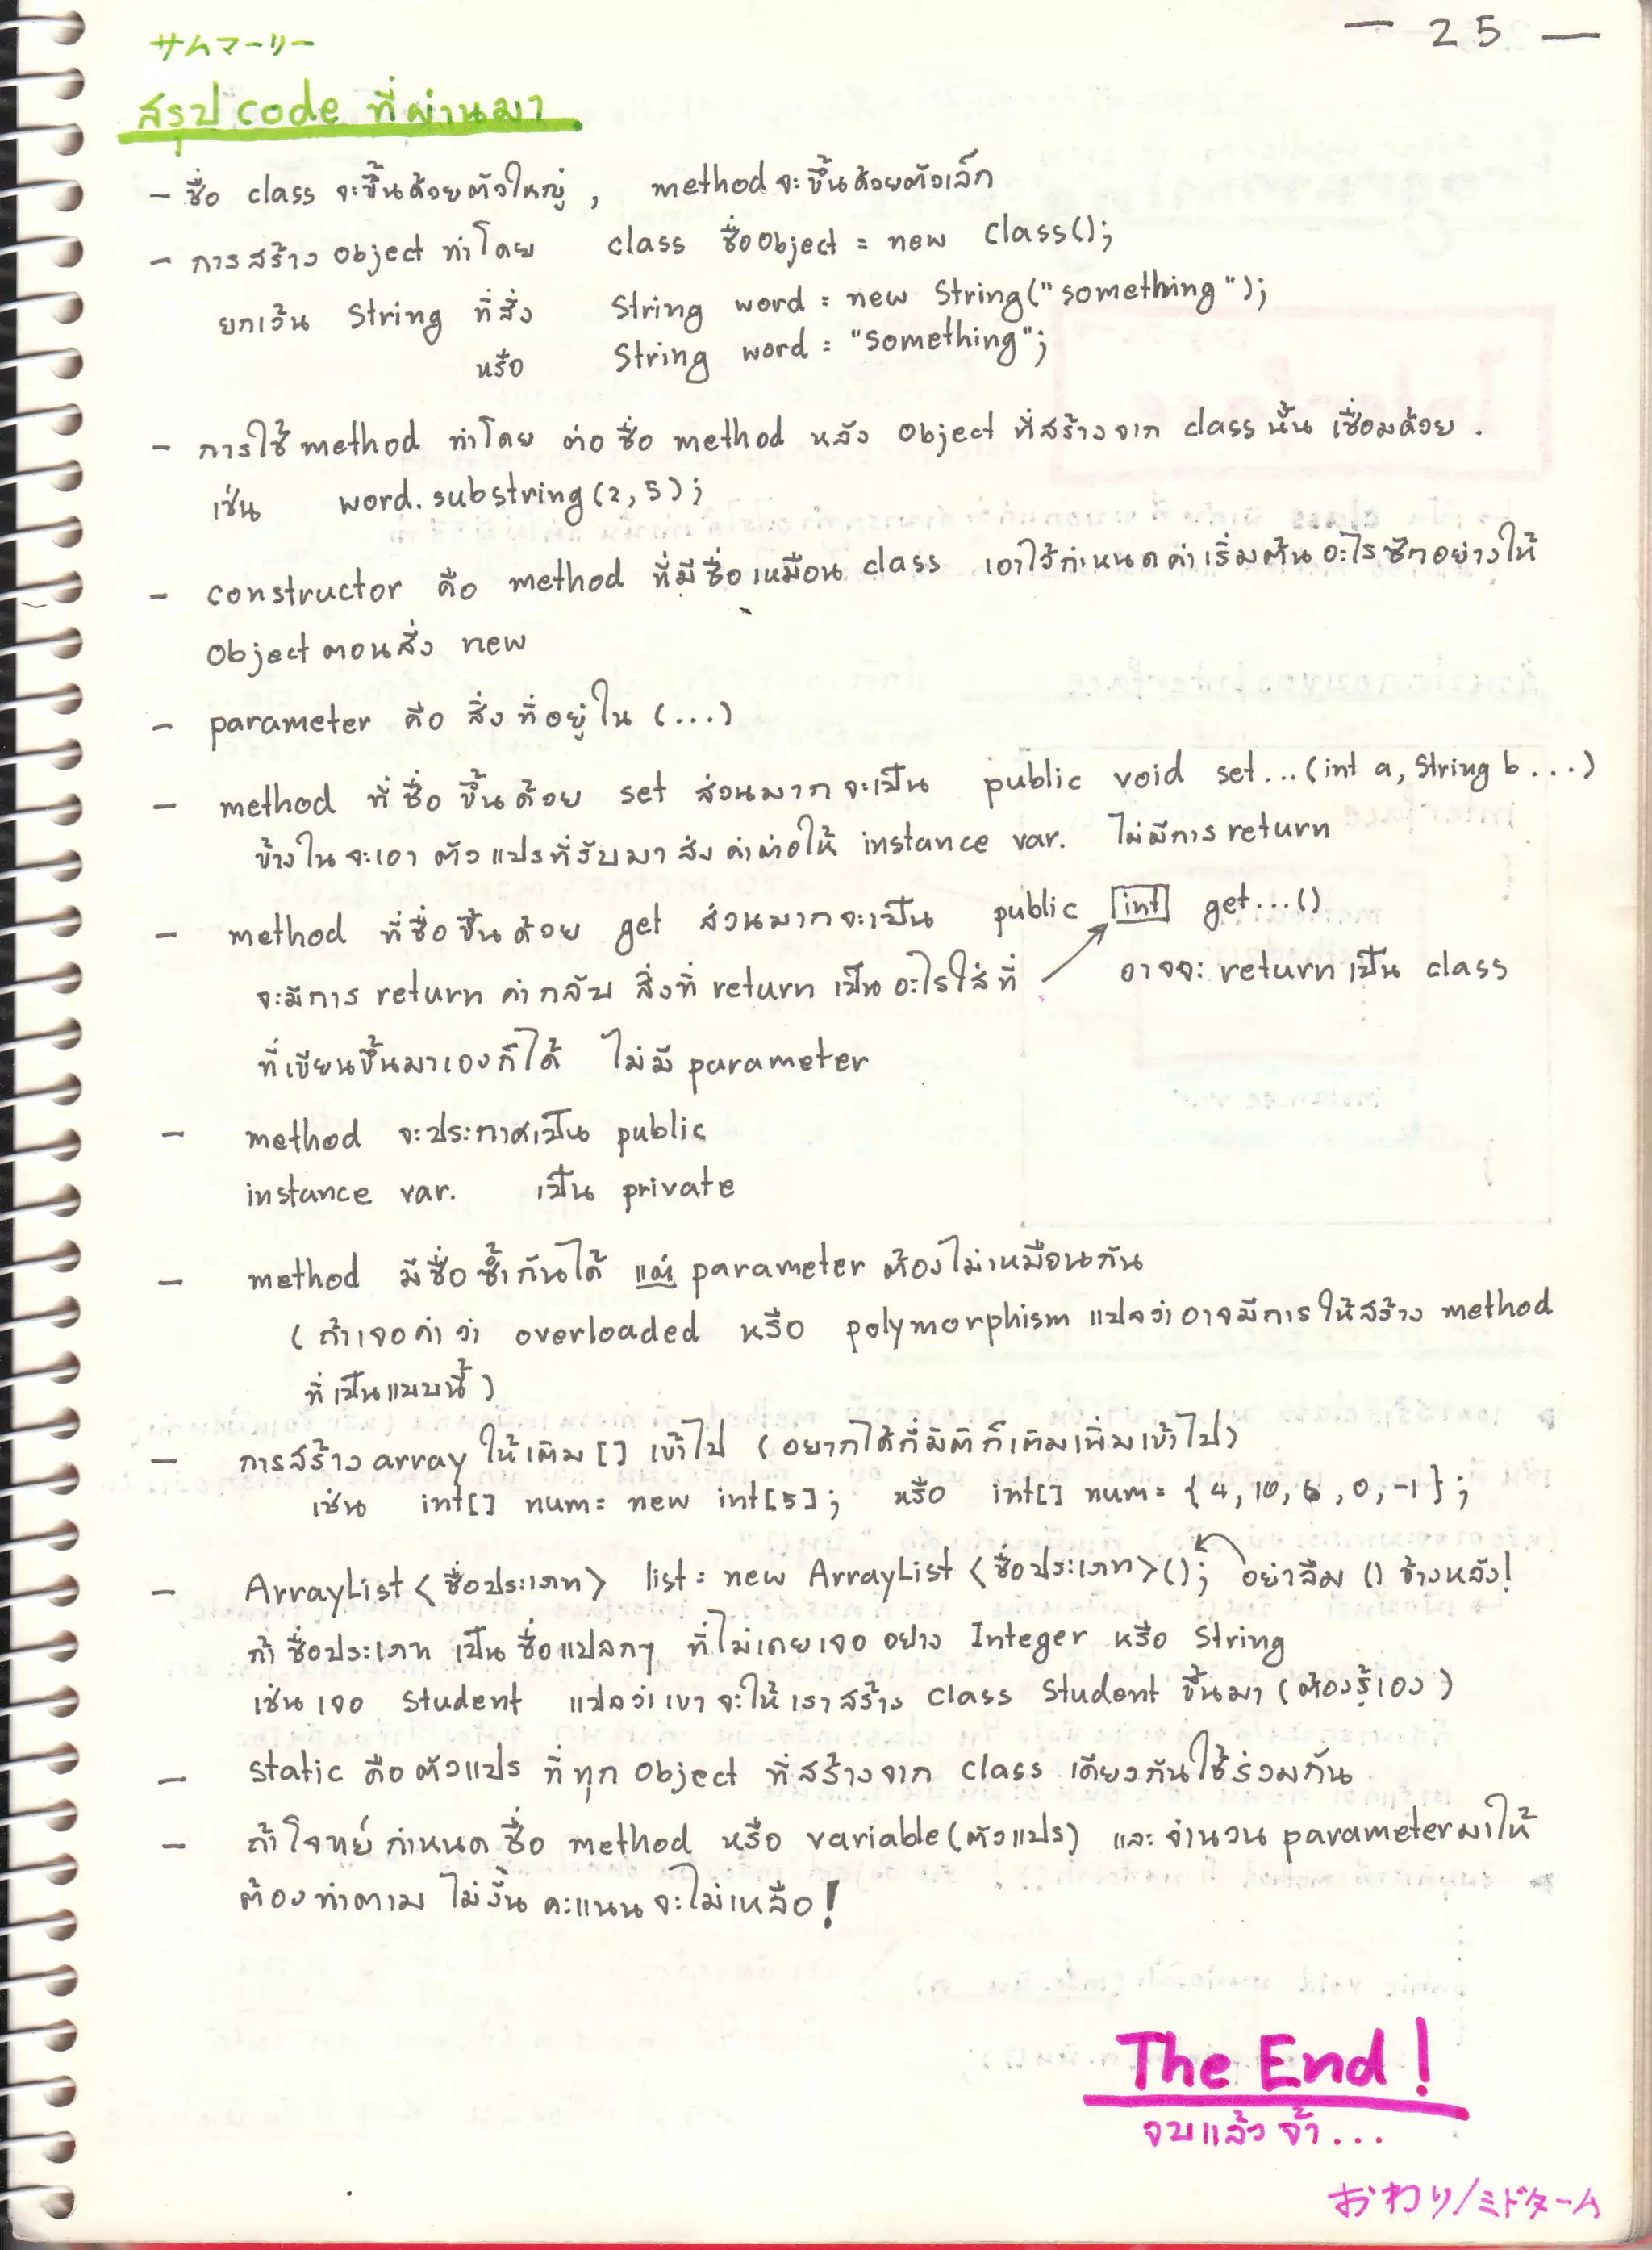 サムマーリー
— 25 —
สรุป code ที่ผ่านมา
- ชื่อ class จะขึ้นด้วยตัวใหญ่ , method จะขึ้นด้วยตัวเล็ก
- การสร้าง object ทำโดย class ชื่อobject = new class();
ยกเว้น String ที่สั่ง String word = new String("something");
หรือ String word = "something";
- การใช้ method ทำโดย ต่อชื่อ method หลัง object ที่สร้างจาก class นั้น เชื่อมด้วย .
เช่น word.substring(2,5);
- constructor คือ method ที่มีชื่อเหมือน class เอาไว้กำหนดค่าเริ่มต้นอะไรซักอย่างให้
object ตอนสั่ง new
- parameter คือ สิ่งที่อยู่ใน (...)
- method ที่ชื่อขึ้นด้วย set ส่วนมากจะเป็น public void set...(int a, String b ...)
ข้างในจะเอา ตัวแปรที่รับมา ส่งค่าต่อให้ instance var. ไม่มีการ return
- method ที่ชื่อขึ้นด้วย get ส่วนมากจะเป็น public int get...()
จะมีการ return ค่ากลับ สิ่งที่ return เป็นอะไรใส่ที่ อาจจะ return เป็น class
ที่เขียนขึ้นมาเองก็ได้ ไม่มี parameter
- method จะประกาศเป็น public
instance var. เป็น private
- method มีชื่อซ้ำกันได้ แต่ parameter ต้องไม่เหมือนกัน
(ถ้าเจอคำว่า overloaded หรือ polymorphism แปลว่าอาจมีการให้สร้าง method
ที่เป็นแบบนี้)
- การสร้าง array ให้เติม [] เข้าไป (อยากได้กี่มิติก็เติมเพิ่มเข้าไป)
เช่น int[] num = new int[5]; หรือ int[] num = {4, 10, 6, 0, -1};
- ArrayList<ชื่อประเภท> list = new ArrayList<ชื่อประเภท>(); อย่าลืม () ข้างหลัง!
ถ้าชื่อประเภท เป็นชื่อแปลกๆ ที่ไม่เคยเจอ อย่าง Integer หรือ String
เช่นเจอ Student แปลว่าเขาจะให้เราสร้าง class Student ขึ้นมา (ต้องรู้เอง)
- static คือตัวแปร ที่ทุก object ที่สร้างจาก class เดียวกันใช้ร่วมกัน
- ถ้าโจทย์กำหนดชื่อ method หรือ variable(ตัวแปร) และจำนวน parameter มาให้
ต้องทำตาม ไม่งั้น คะแนนจะไม่เหลือ!
The End!
จบแล้วจ้า...
おわり/ミドターム